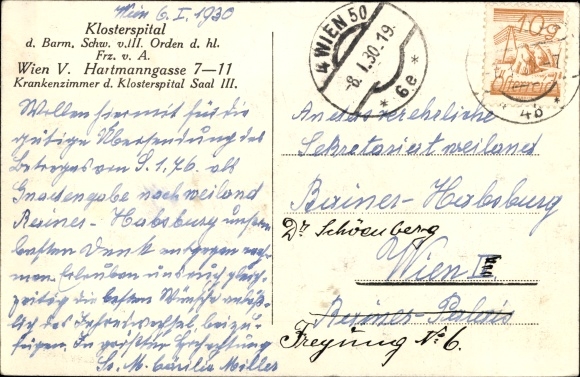 Wien 6. I. 1930
Klosterspital
d. Barm. Schw. v. III. Orden d. hl.
Frz. v. A.
Wien V. Hartmanngasse 7—11
Krankenzimmer d. Klosterspital Saal III.
Wollen hiermit für die
gütige Übersendung des
Betrages von S. 1,76. als
Gnadengabe nach weiland
Rainer-Habsburg unsern
besten Dank entgegen neh-
men. Erlauben uns auch gleich-
zeitig die besten Wünsche
des Jahreswechsel beizu-
fügen. In größter Hochachtung
Sr. M. Cäcilia Miller
4 WIEN 50
-8. I. 30-19.
* 6e *
10g
Österreich
4b
An das verehrliche
Sekretariat weiland
Rainer-Habsburg
Dr. Schöenberg
Wien III
Rainer-Palais
Freyung No. 6.